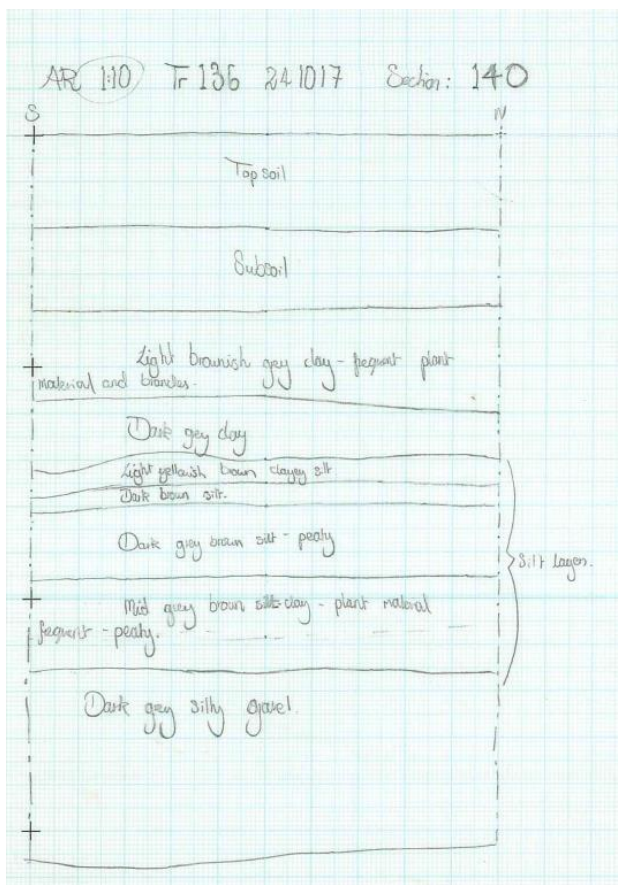 AR 1:10 Tr 136 241017 Section: 140
S N
Topsoil
Subsoil
Light brownish grey clay - frequent plant
material and branches.
Dark grey clay
Light yellowish brown clayey silt
Dark brown silt.
Dark grey brown silt - peaty
Silt layers.
Mid grey brown silt-clay - plant material
frequent - peaty.
Dark grey silty gravel.